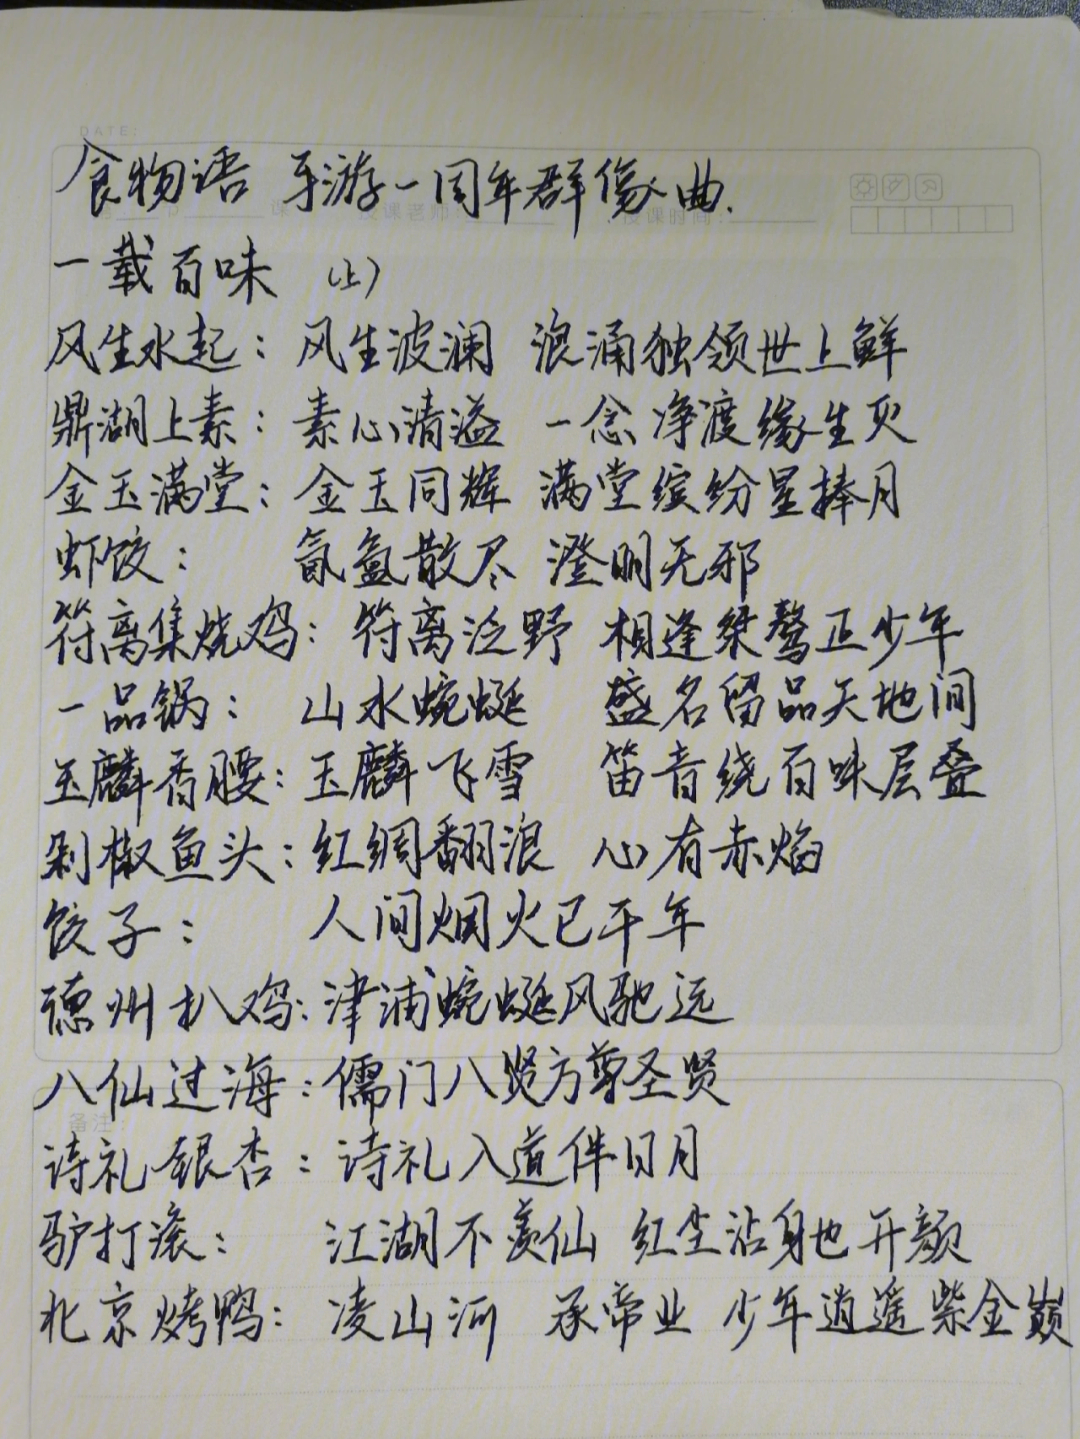 DATE:
食物语 手游一周年群像曲.
一载百味 (上)
风生水起: 风生波澜 浪涌独领世上鲜
鼎湖上素: 素心清溢 一念净渡缘生灭
金玉满堂: 金玉同辉 满堂缤纷星捧月
虾饺: 氤氲散尽 澄明无邪
符离集烧鸡: 符离泛野 相逢桀骜正少年
一品锅: 山水蜿蜒 盛名留品天地间
玉麟香腰: 玉麟飞雪 笛音绕百味层叠
剁椒鱼头: 红绸翻浪 心有赤焰
饺子: 人间烟火已千年
德州扒鸡: 津浦蜿蜒风驰远
八仙过海: 儒门八贤方尊圣贤
备注:
诗礼银杏: 诗礼入道伴日月
驴打滚: 江湖不羡仙 红尘沾身也开颜
北京烤鸭: 凌山河 承帝业 少年逍遥紫金巅